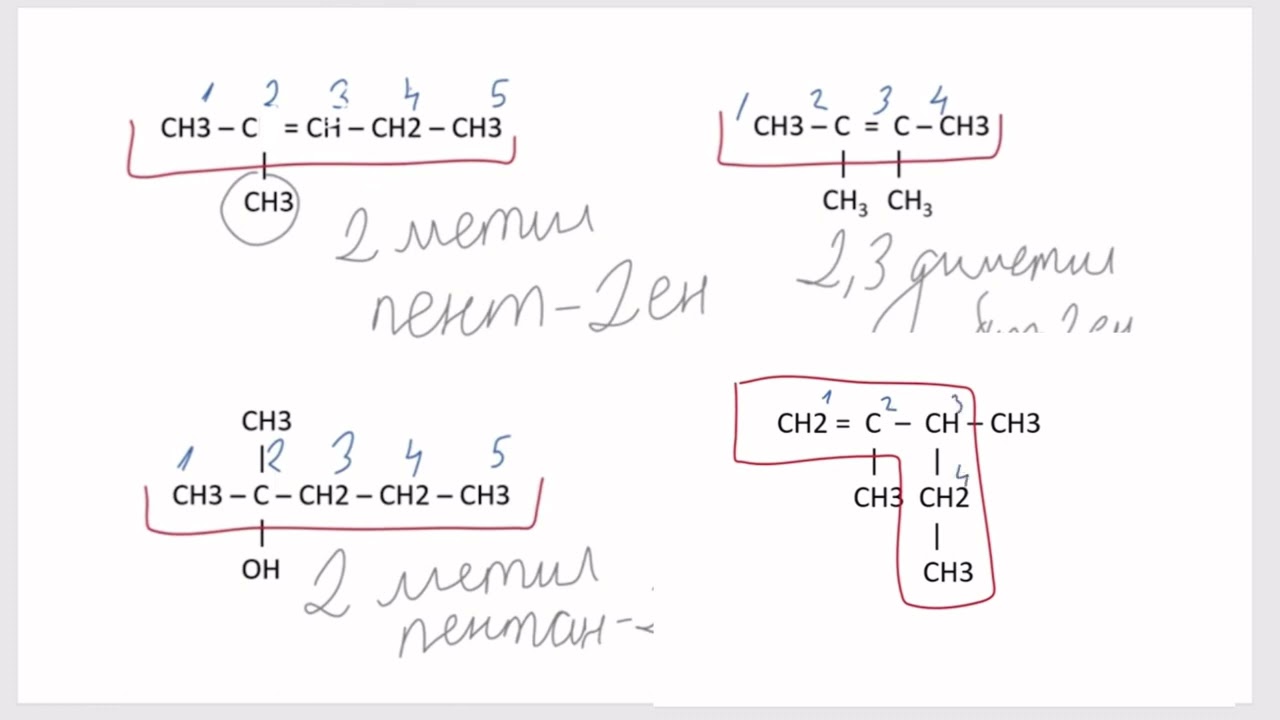 1 2 3 4 5
CH3 – C = CH – CH2 – CH3
|
CH3
2 метил
пент-2ен
1 2 3 4
CH3 – C = C – CH3
| |
CH₃ CH₃
2,3 диметил
CH3
1 |2 3 4 5
CH3 – C – CH2 – CH2 – CH3
|
OH
2 метил
пентан-
1 2 3
CH2 = C – CH – CH3
| | 4
CH3 CH2
|
CH3